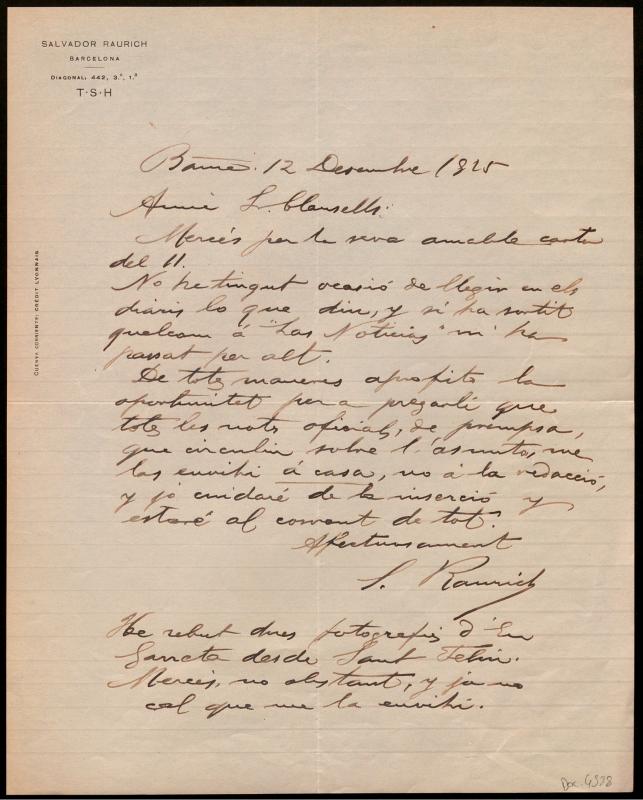 SALVADOR RAURICH
BARCELONA
DIAGONAL, 442, 3.º, 1.ª
T·S·H
CUENTA CORRIENTE: CRÉDIT LYONNAIS
12 Desembre 1925
Amic Sr. Clausells:
Mercés per la seva amable carta
del 11.
No he tingut ocasió de llegir en els
diaris lo que diu, y si ha sortit
quelcom á "Las Noticias" m'ha
passat per alt.
De totes maneres aprofito la
oportunitat per a pregarli que
totes les nots oficials, de prempsa,
que circulin sobre l'asunto, me
las envihi á casa, no á la redacció,
y jo cuidaré de la inserció y
estaré al corrent de tot.
Afectuosament
S. Raurich
He rebut dues fotografies d'En
Garreta desde Sant Feliu.
Mercés, no obstant, y ja no
cal que me la envihi.
Doc. 4338